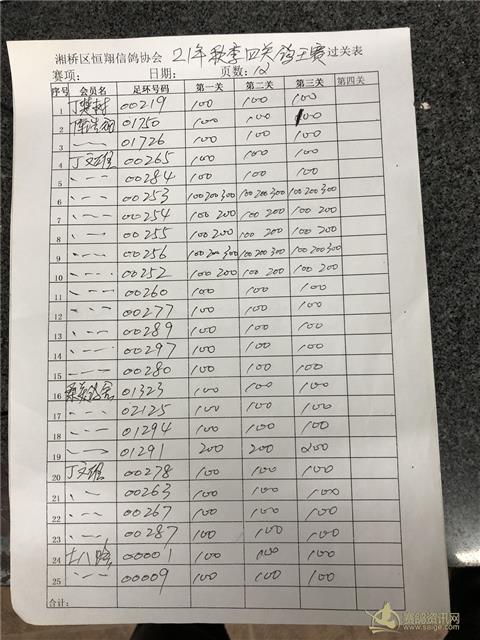 湘桥区恒翔信鸽协会 21年秋季四关鸽王赛过关表
赛项: 日期: 页数: 12
序号 会员名 足环号码 第一关 第二关 第三关 第四关
1 00219 100 100 100
2 01750 100 100 100
3 〃 01726 100 100 100
4 丁文雄 00265 100 100 100
5 〃 00284 100 100 100
6 〃 00253 100 200 300 100 200 300 100 200 300
7 〃 00254 100 200 100 200 100 200
8 〃 00255 100 200 100 200 100 200
9 〃 00256 100 200 300 100 200 300 100 200 300
10 〃 00252 100 200 100 200 100 200
11 〃 00260 100 100 100
12 〃 00277 100 100 100
13 〃 00289 100 100 100
14 〃 00297 100 100 100
15 〃 00280 100 100 100
16 01323 100 100 100
17 〃 02125 100 100 100
18 〃 01294 100 100 100
19 〃 01291 200 200 200
20 丁文雄 00278 100 100 100
21 〃 00263 100 100 100
22 〃 00267 100 100 100
23 〃 00287 100 100 100
24 00001 100 100 100
25 〃 00009 100 100 100
合计:
赛鸽资讯网
www.saige.com